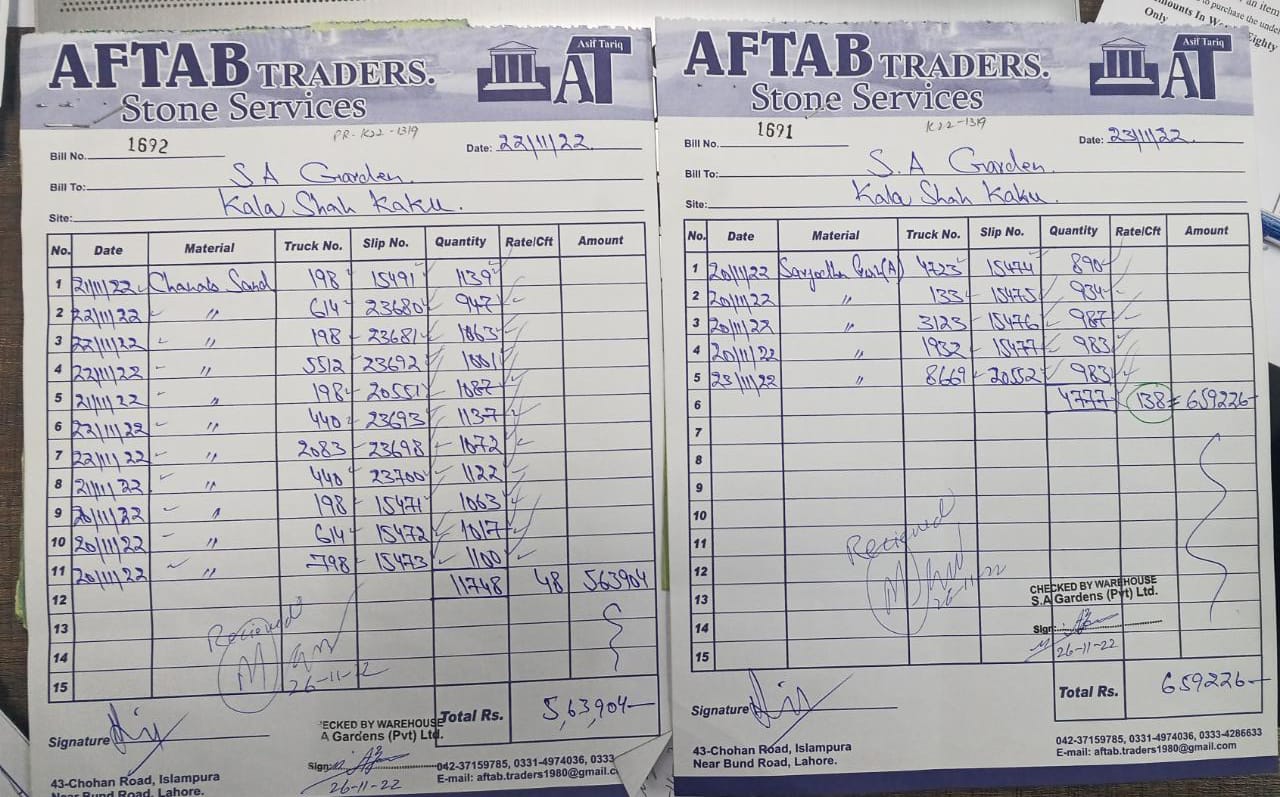 AFTAB TRADERS.
Stone Services
Asif Tariq
AT
PR-K22-1319
Bill No. 1692 Date: 22/11/22
Bill To: S A Garden.
Site: Kala Shah Kaku.
No. Date Material Truck No. Slip No. Quantity Rate/Cft Amount
1 21/11/22 Chanab Sand 198 15491 1139
2 22/11/22 〃 614 23680 947
3 22/11/22 〃 198 23681 1063
4 22/11/22 〃 5512 23692 1001
5 21/11/22 〃 198 20551 1087
6 22/11/22 〃 440 23693 1137
7 22/11/22 〃 2083 23698 1072
8 21/11/22 〃 440 23700 1122
9 20/11/22 〃 198 15471 1063
10 20/11/22 〃 614 15472 1017
11 20/11/22 〃 798 15473 1100
12 11748 48 563904
13
14
15
Recieved
26-11-22
Total Rs. 5,63,904
Signature
ECKED BY WAREHOUSE
A Gardens (Pvt) Ltd.
Sign:
26-11-22
43-Chohan Road, Islampura
Near Bund Road, Lahore.
042-37159785, 0331-4974036, 0333
E-mail: aftab.traders1980@gmail.c
AFTAB TRADERS.
Stone Services
Asif Tariq
AT
K22-1319
Bill No. 1691 Date: 23/11/22
Bill To: S.A Garden.
Site: Kala Shah Kaku.
No. Date Material Truck No. Slip No. Quantity Rate/Cft Amount
1 20/11/22 (A) 4723 15474 890
2 20/11/22 〃 133 15475 934
3 20/11/22 〃 3123 15476 987
4 20/11/22 〃 1932 15477 983
5 23/11/22 〃 8669 20552 983
6 4777 138 = 659226
7
8
9
10
11
12
13
14
15
Recieved
26-11-22
CHECKED BY WAREHOUSE
S.A Gardens (Pvt) Ltd.
Sign:
26-11-22
Total Rs. 659226
Signature
43-Chohan Road, Islampura
Near Bund Road, Lahore.
042-37159785, 0331-4974036, 0333-4286633
E-mail: aftab.traders1980@gmail.com
an item
to purchase the unde
mounts In Wo
Only
Eighty